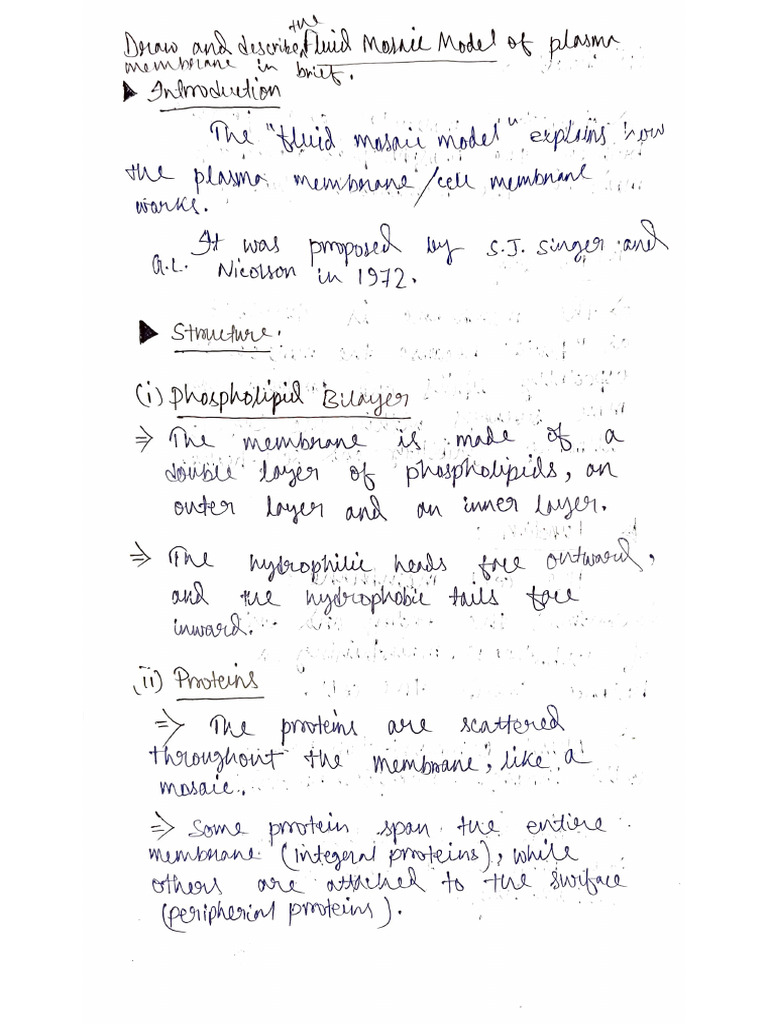 the
Draw and describe, Fluid Mosaic Model of plasma
membrane in brief.
Introduction
The "fluid mosaic model" explains how
the plasma membrane/cell membrane
works.
It was proposed by S.J. Singer and
G.L. Nicolson in 1972.
Structure.
(i) Phospholipid Bilayer
⇒ The membrane is made of a
double layer of phospholipids, an
outer layer and an inner layer.
⇒ The hydrophilic heads face outward,
and the hydrophobic tails face
inward.
(ii) Proteins
⇒ The proteins are scattered
throughout the membrane, like a
mosaic.
⇒ Some protein span the entire
membrane (integral proteins), while
others are attached to the surface
(peripherial proteins).